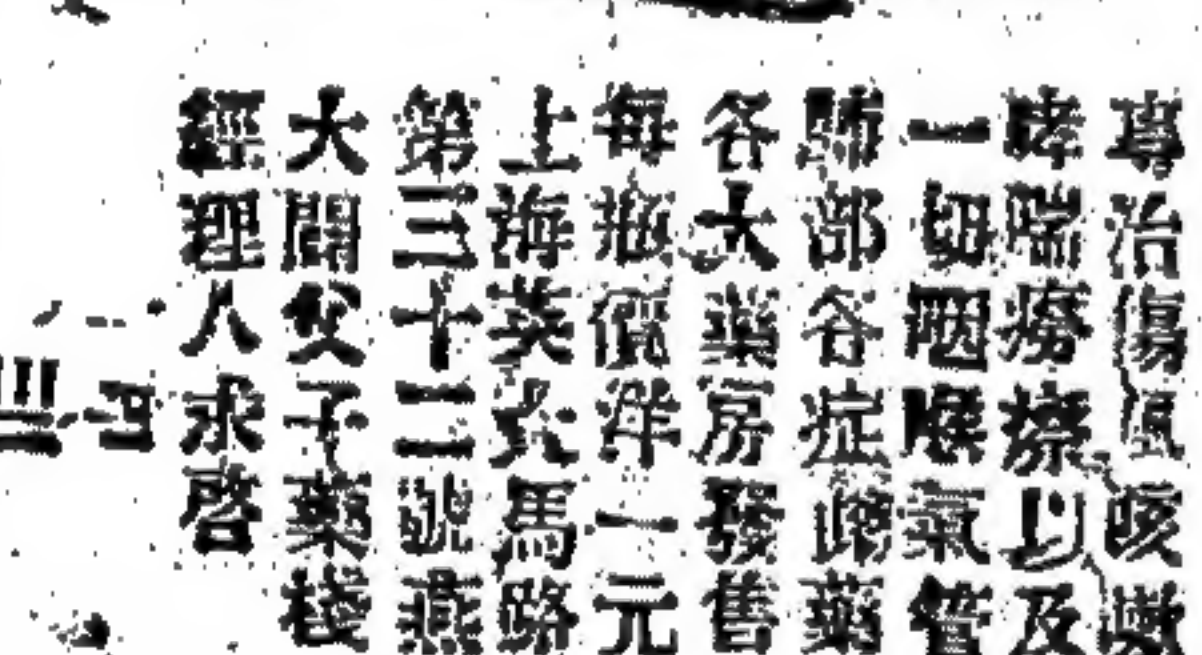 專治傷風咳嗽
哮喘癆瘵以及
一切咽喉氣管
肺部各症藥
各大藥房發售
每瓶價洋一元
上海英大馬路
第三十二號燕
大父子藥棧
經理人求啓